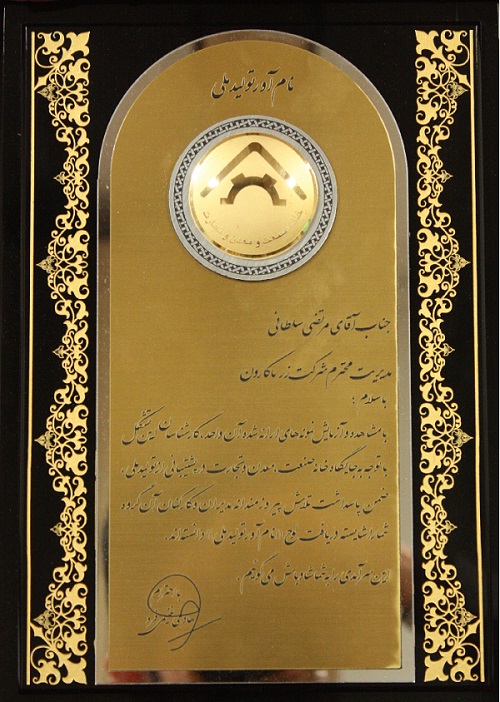 نام آور تولید ملی
خانه صنعت و معدن و تجارت
جناب آقای مرتضی سلطانی
مدیریت محترم شرکت زر ماکارون
با سلام ؛
با مشاهده و آزمایش نمونه های ارائه شده آن واحد، کارشناسان این تشکل
با توجه به جایگاه خانه صنعت، معدن و تجارت در پشتیبانی از تولید ملی،
ضمن پاسداشت تلاش پیروزمندانه مدیران و کارکنان آن گروه
شما را شایسته دریافت لوح «نام آور تولید ملی» دانسته اند.
این سرآمدی را به شما شادباش می گوئیم.
با احترام